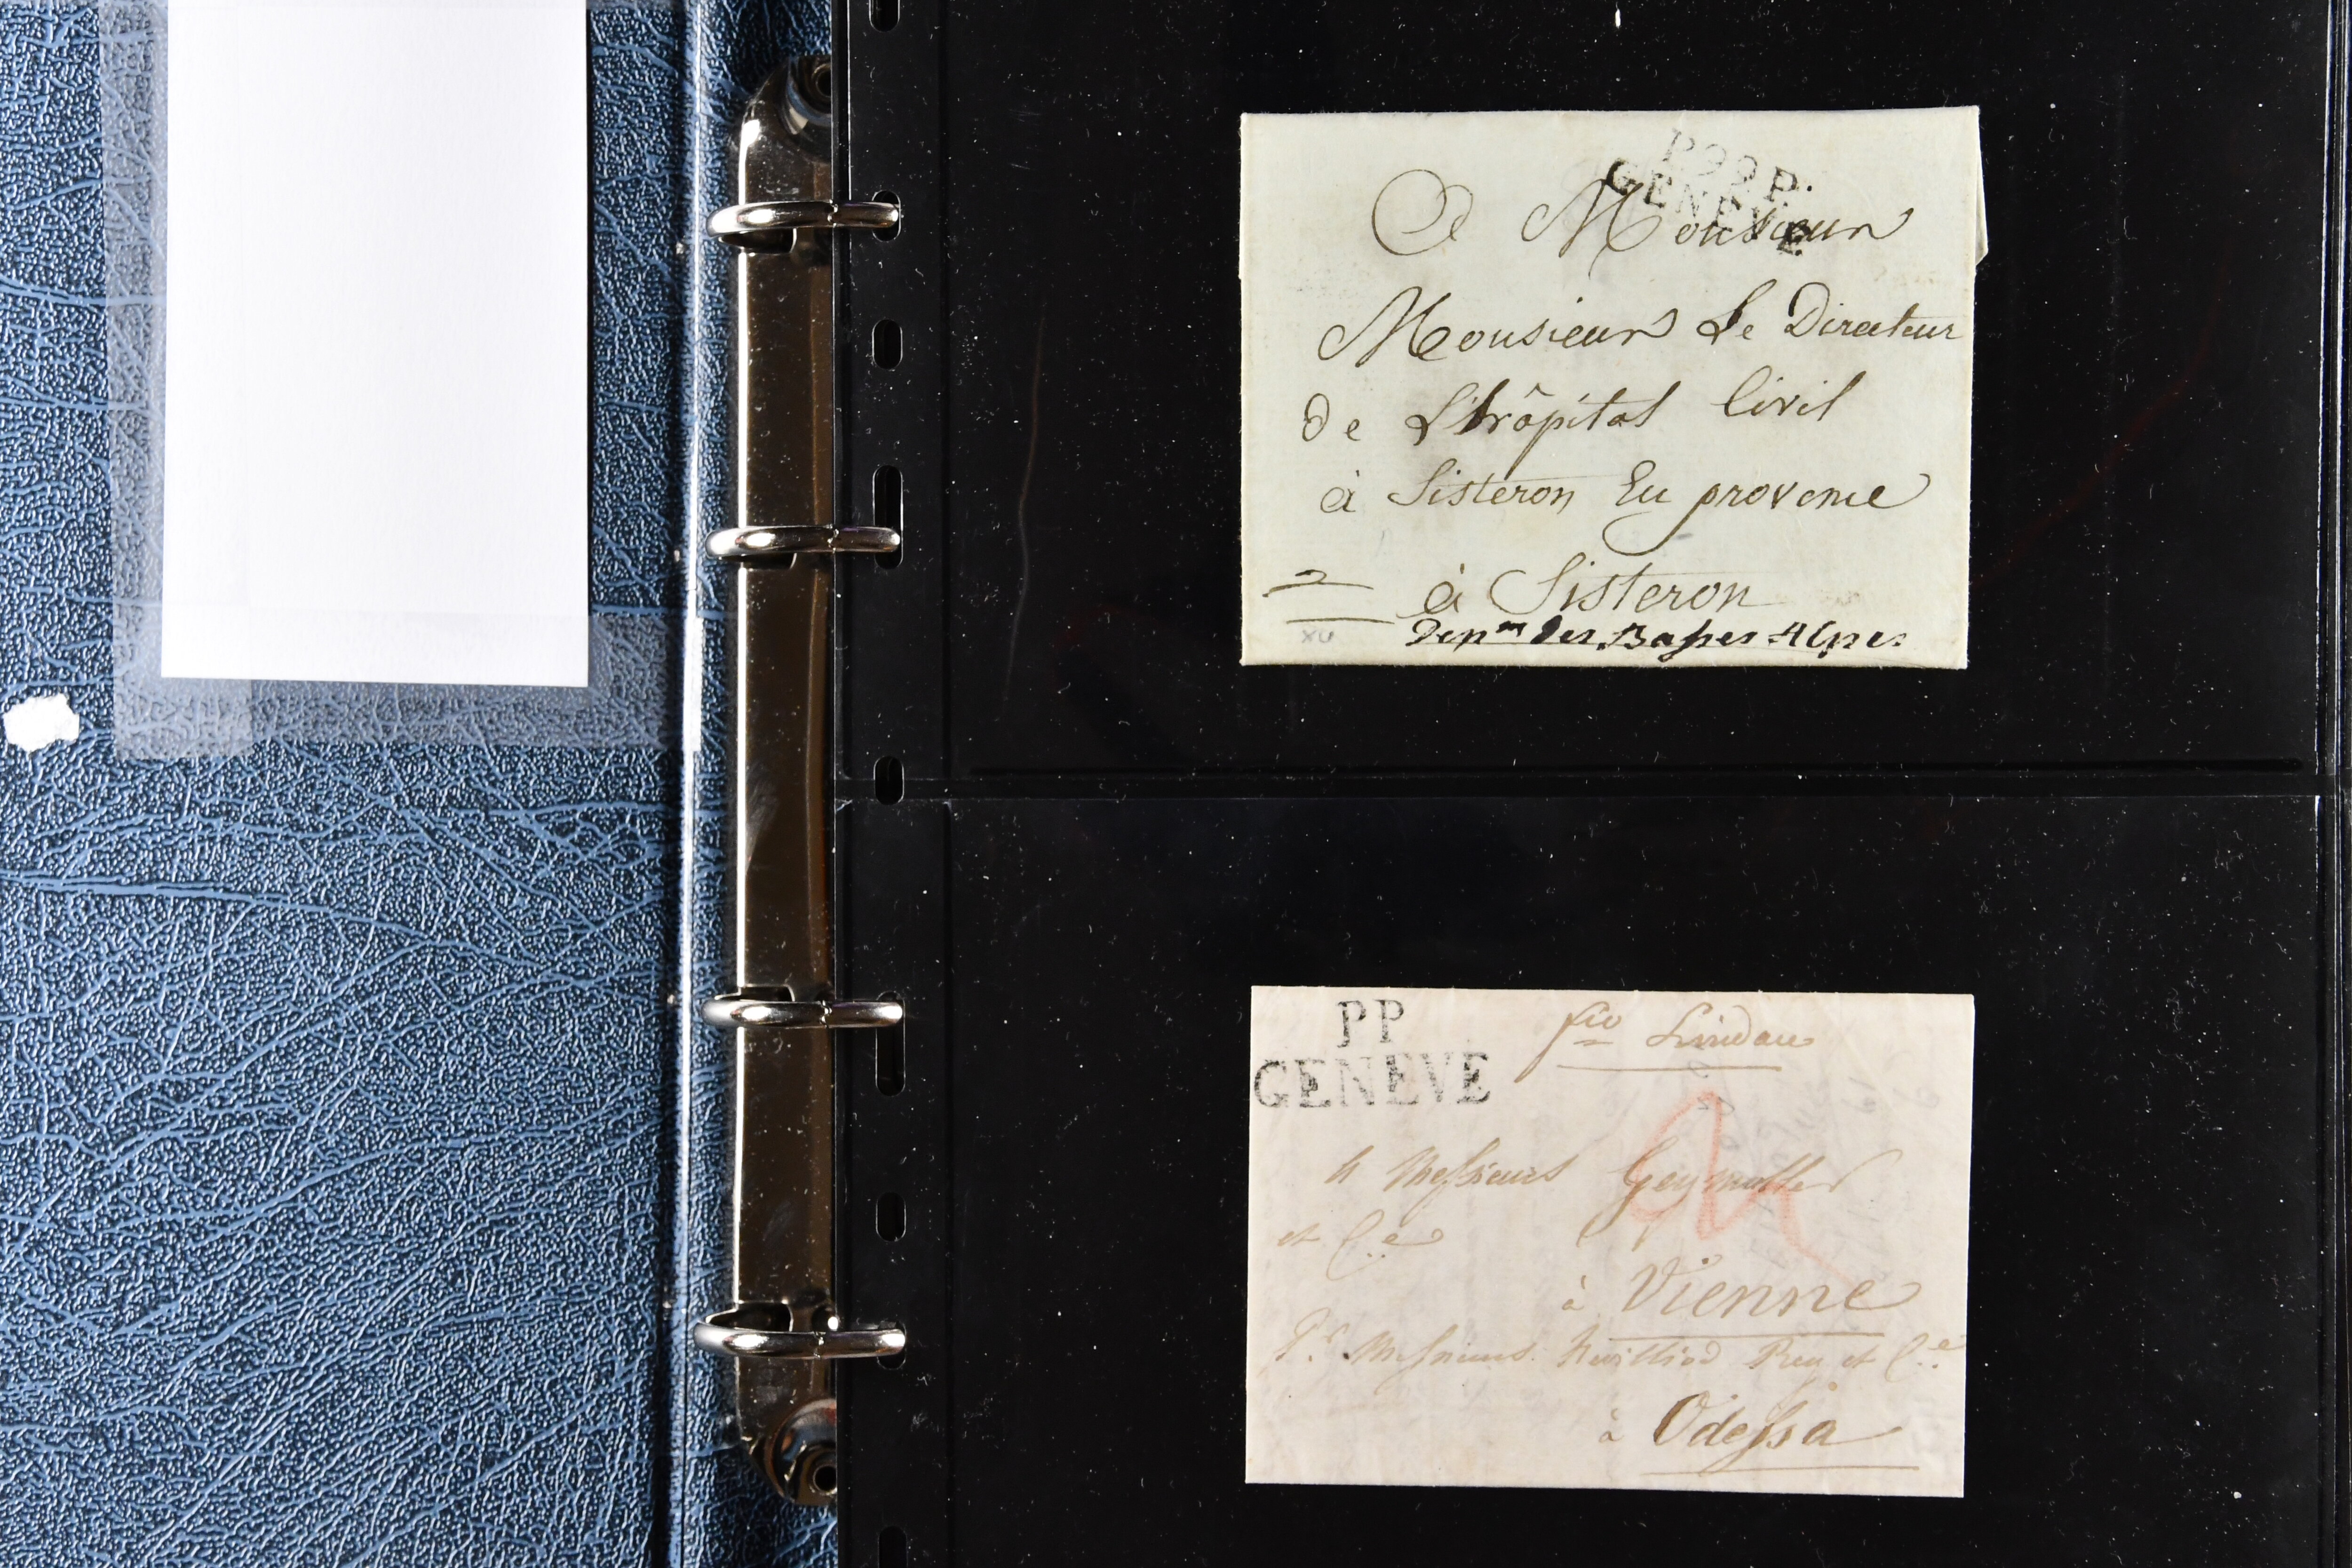 P99P.
GENEVE
A Monsieur
Monsieur Le Directeur
De L'hôpital Civil
à Sisteron En provence
à Sisteron
Depm Des Basses Alpes
PP
GENEVE
fco Lindau
A Messieurs Geymuller
et Ce
à Vienne
Pr Messieurs Revilliod Rey et Ce
à Odessa